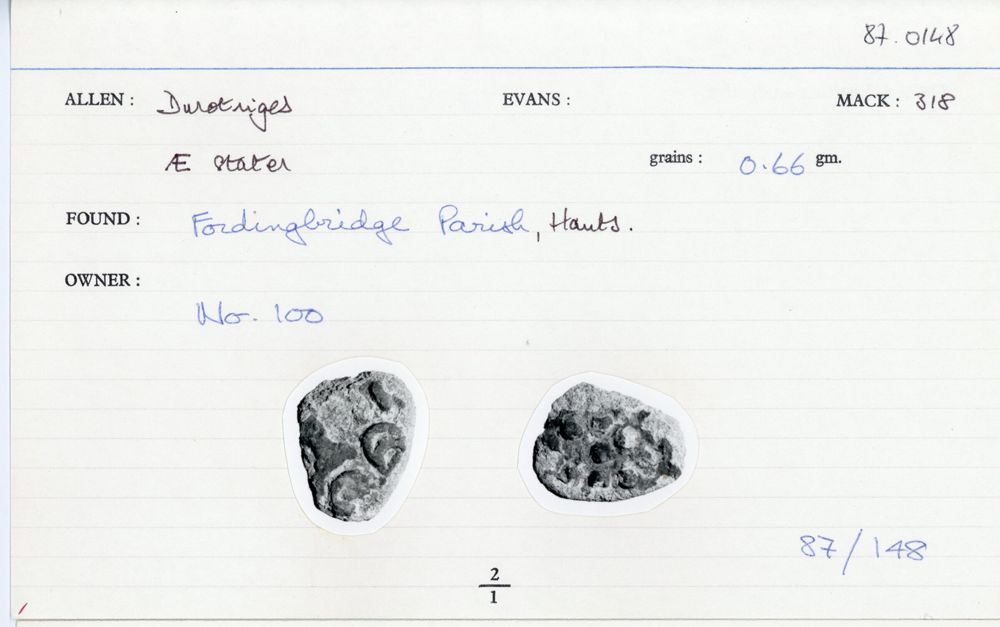 87.0148
ALLEN : Durotriges EVANS : MACK : 318
Æ stater grains : 0.66 gm.
FOUND : Fordingbridge Parish, Hants.
OWNER :
No. 100
87/148
2
1